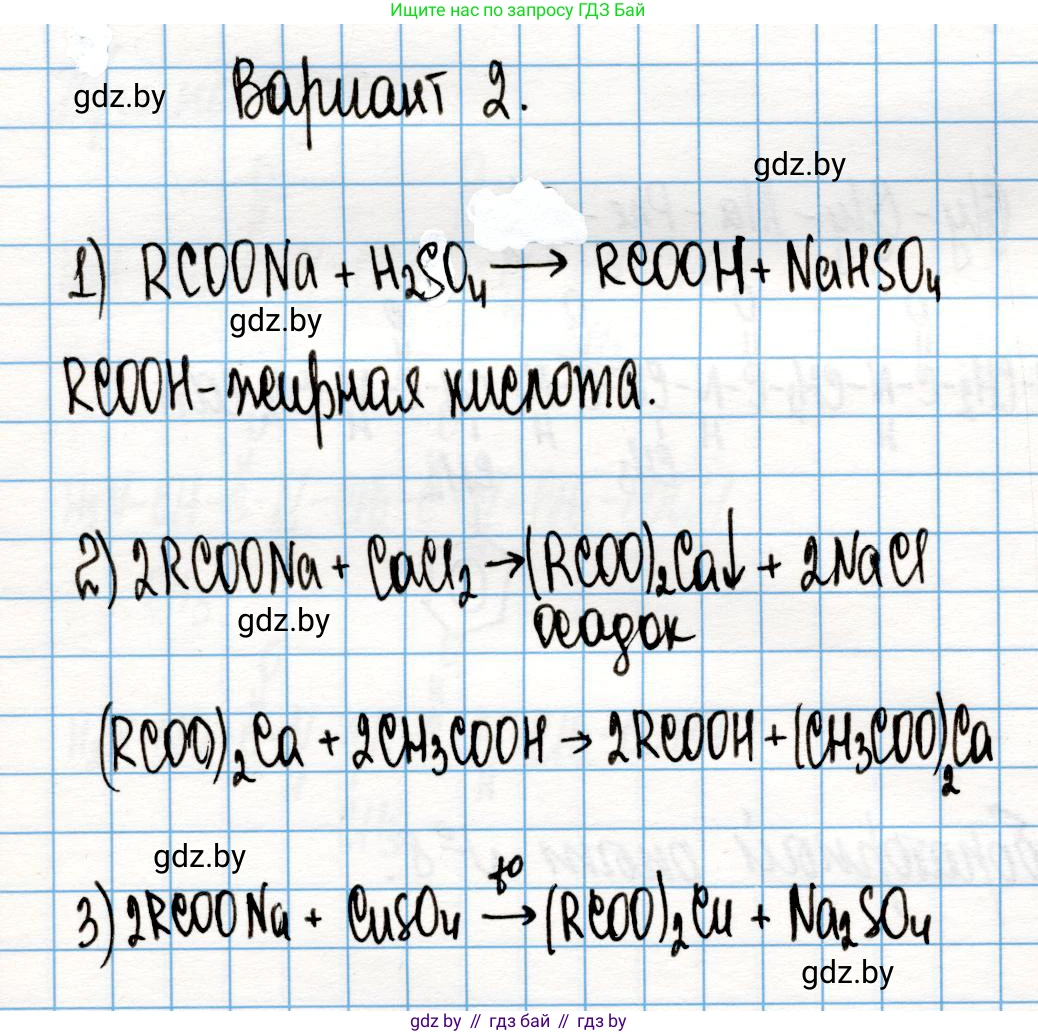 Ищите нас по запросу ГДЗ Бай
gdz.by
Вариант 2.
gdz.by
1) RCOONa + H₂SO₄ → RCOOH + NaHSO₄
gdz.by
RCOOH - жирная кислота.
2) 2RCOONa + CaCl₂ → (RCOO)₂Ca↓ + 2NaCl
gdz.by
осадок
(RCOO)₂Ca + 2CH₃COOH → 2RCOOH + (CH₃COO)₂Ca
gdz.by
t⁰
3) 2RCOONa + CuSO₄ → (RCOO)₂Cu + Na₂SO₄
gdz.by
gdz.by // гдз бай // гдз by